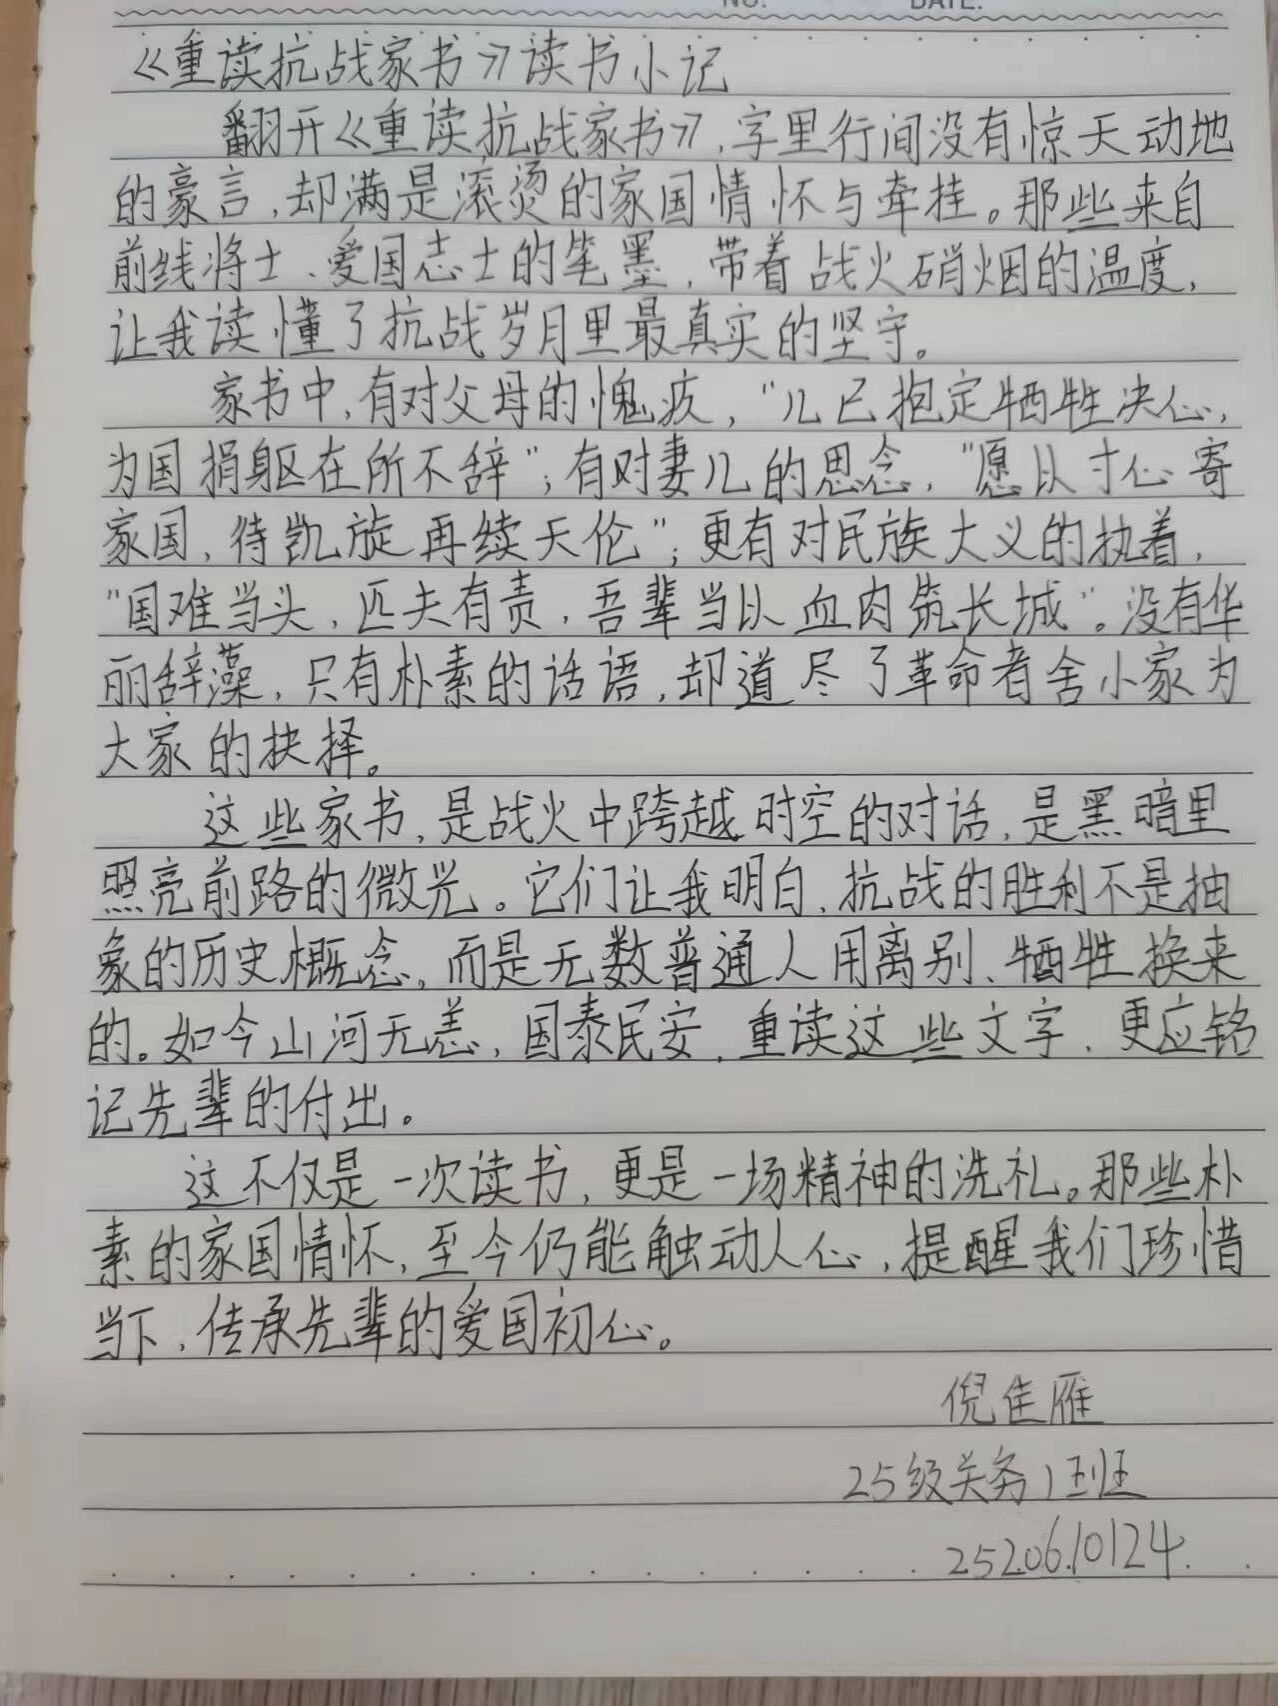 NO. DATE.
《重读抗战家书》读书小记
翻开《重读抗战家书》,字里行间没有惊天动地
的豪言,却满是滚烫的家国情怀与牵挂。那些来自
前线将士、爱国志士的笔墨,带着战火硝烟的温度,
让我读懂了抗战岁月里最真实的坚守。
家书中,有对父母的愧疚,"儿已抱定牺牲决心,
为国捐躯在所不辞";有对妻儿的思念,"愿以寸心寄
家国,待凯旋再续天伦";更有对民族大义的执着,
"国难当头,匹夫有责,吾辈当以血肉筑长城"。没有华
丽辞藻,只有朴素的话语,却道尽了革命者舍小家为
大家的抉择。
这些家书,是战火中跨越时空的对话,是黑暗里
照亮前路的微光。它们让我明白,抗战的胜利不是抽
象的历史概念,而是无数普通人用离别、牺牲换来
的。如今山河无恙,国泰民安,重读这些文字,更应铭
记先辈的付出。
这不仅是一次读书,更是一场精神的洗礼。那些朴
素的家国情怀,至今仍能触动人心,提醒我们珍惜
当下,传承先辈的爱国初心。
倪佳雁
25级关务1班
2520610124